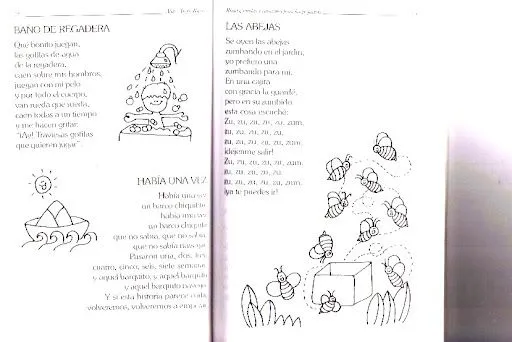 BANO DE REGADERA
Que bonito juegan,
las gotitas de agua
de la regadera,
caen sobre mis hombros,
juegan con mi pelo
y por todo el cuerpo,
van rueda que rueda,
caen todas a un tiempo
y me hacen gritar:
"¡Ay! Traviesas gotitas
que quieren jugar".
HABÍA UNA VEZ
Había una vez
un barco chiquitito
había una vez
un barco chiquitito
que no sabía, que no sabía
que no sabía navegar
Pasaron una, dos, tres
cuatro, cinco, seis, siete semanas
y aquel barquito, y aquel barquito
y aquel barquito navegó
Y si esta historia parece corta
volveremos, volveremos a empezar
LAS ABEJAS
Se oyen las abejas
zumbando en el jardín,
yo prefiero una
zumbando para mí.
En una cajita
con gracia la guardé,
pero en su zumbido
esta cosa escuché:
Zu, zu, zu, zu, zu, zum
zu, zu, zu, zu, zu,
zu, zu, zu, zu, zu, zum
¡déjenme salir!
Zu, zu, zu, zu, zu, zum
zu, zu, zu, zu, zu
zu, zu, zu, zu, zu, zum,
ya te puedes ir!